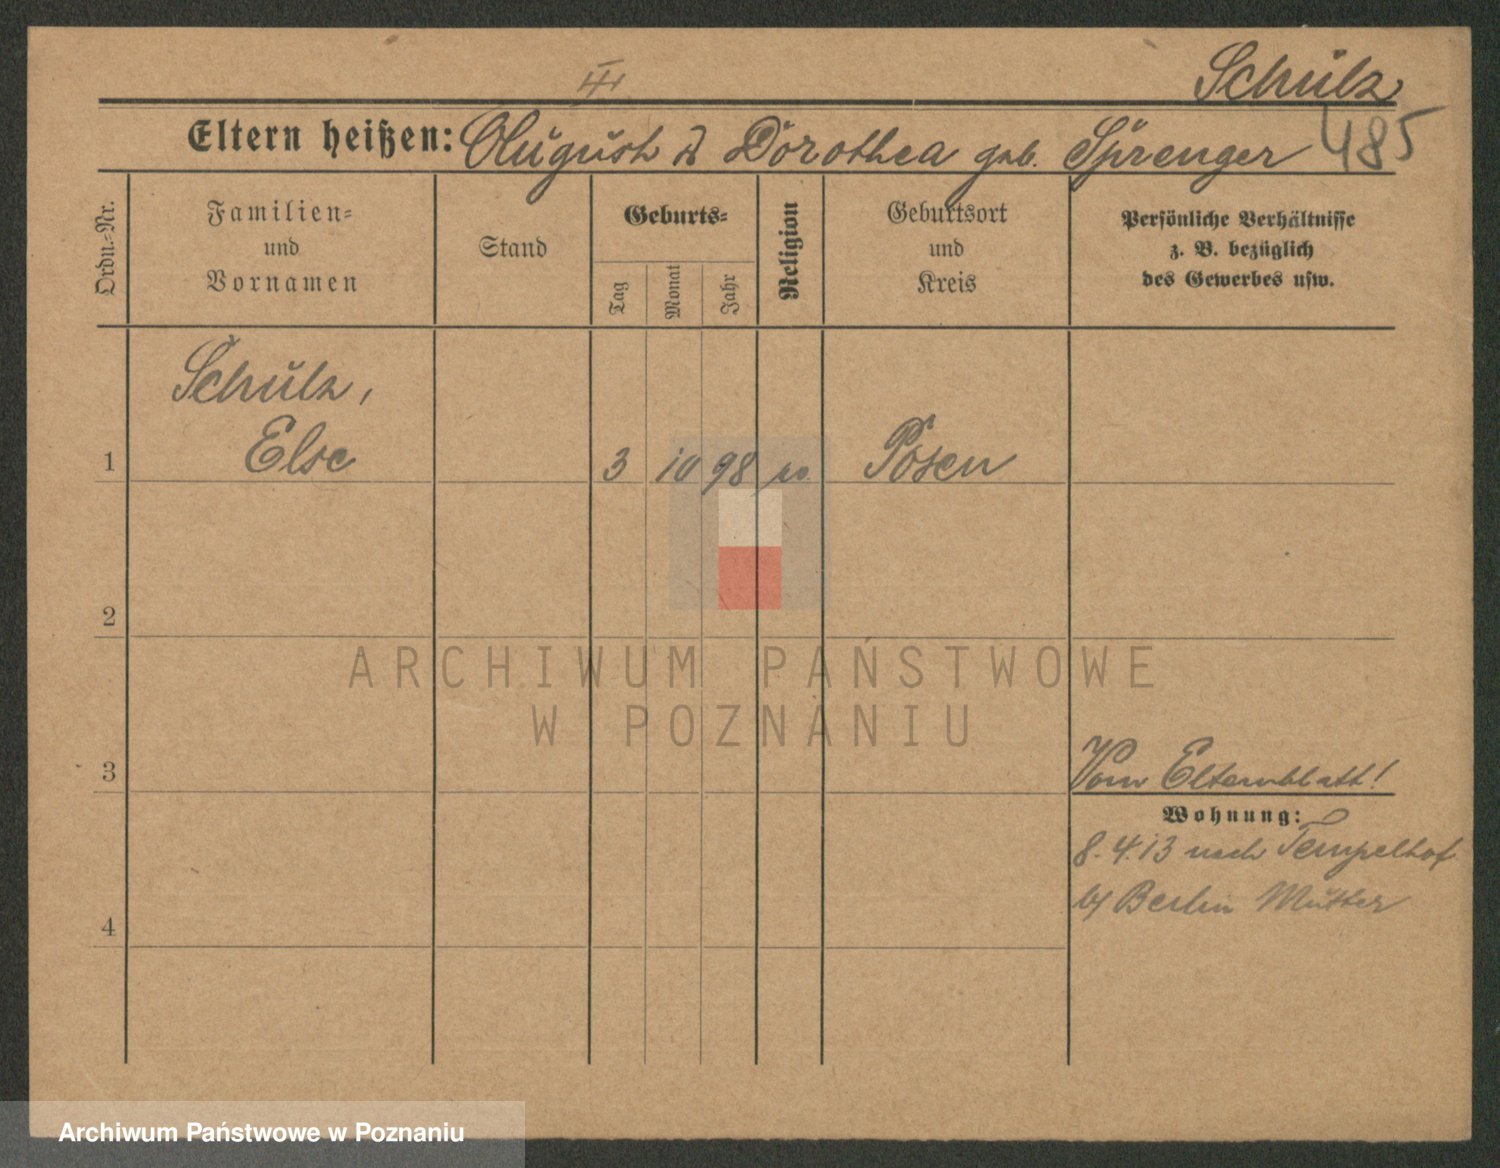 III
Schulz
Eltern heißen: August u Dorothea geb. Sprenger 485
Ordn.-Nr.
Familien-
und
Vornamen
Stand
Geburts-
Tag
Monat
Jahr
Religion
Geburtsort
und
Kreis
Persönliche Verhältnisse
z. B. bezüglich
des Gewerbes usw.
Schulz,
1 Else 3 10 98 Posen
2
ARCHIWUM PAŃSTWOWE
W POZNANIU
3 Vom Elternblatt!
Wohnung:
8. 4. 13 nach Tempelhof
b/ Berlin Mutter
4
Archiwum Państwowe w Poznaniu